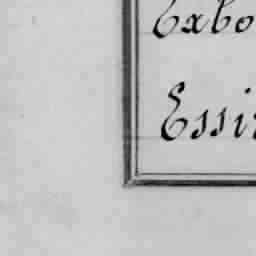 Exbo
Essi